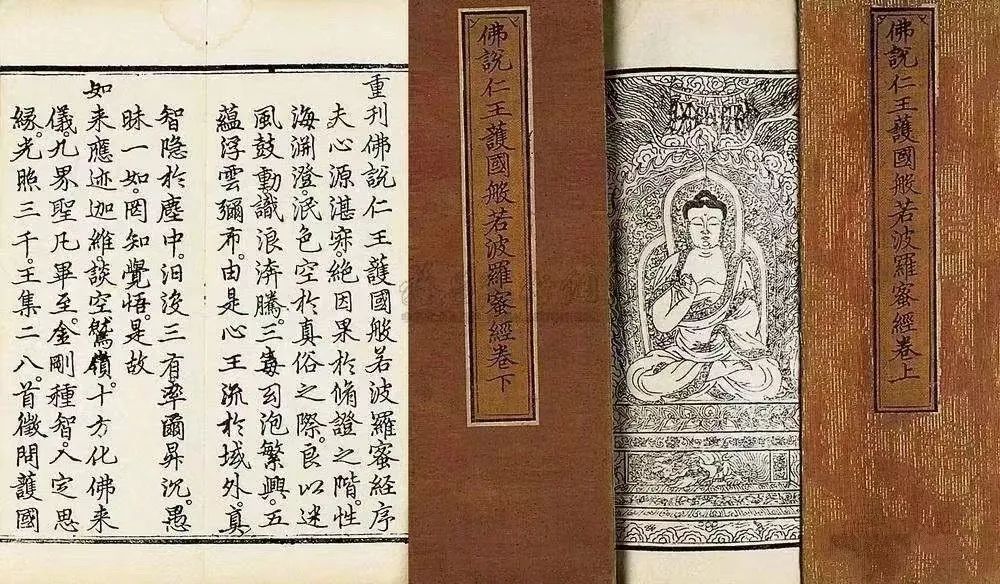 佛說仁王護國般若波羅蜜經卷上
佛說仁王護國般若波羅蜜經卷下
重刊佛說仁王護國般若波羅蜜經序
夫心源湛寂。絕因果於脩證之階。性
海渊澄。泯色空於真俗之際。良以迷
風鼓動。識浪渀騰。三毒幻泡繁興。五
蘊浮雲彌布。由是心王流於域外。真
智隐於塵中。洎後三有率爾昇沉。愚
昧一如。罔知覺悟。是故
如來應迹迦維。談空鷲嶺。十方化佛來
儀。九界聖凡畢至。金剛種智。入定思
緣。光照三千。王集二八。首徵問護國